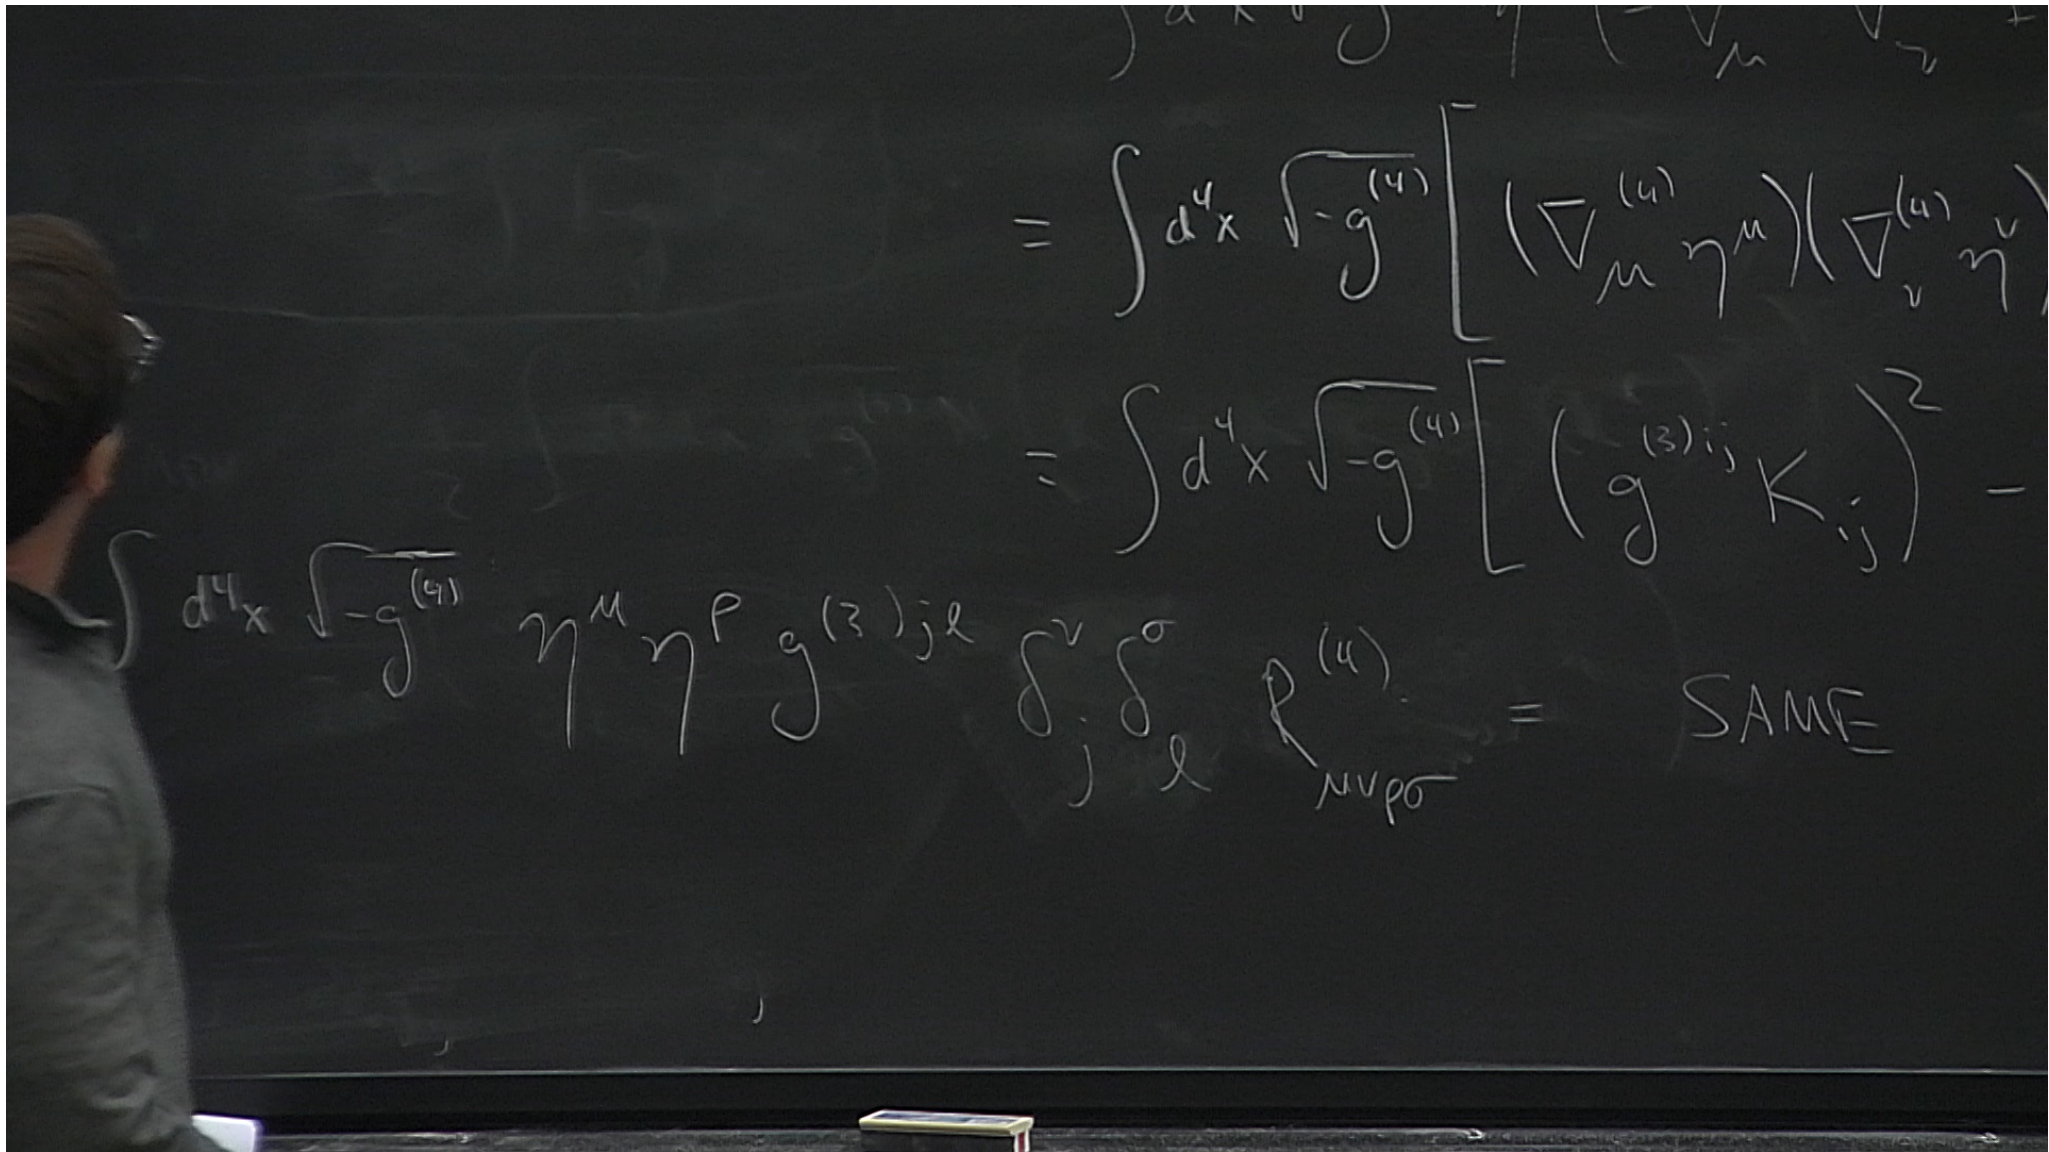 = ∫ d⁴x √-g⁽⁴⁾ [ (∇_μ⁽⁴⁾ η^μ)(∇_ν⁽⁴⁾ η^ν)
= ∫ d⁴x √-g⁽⁴⁾ [ (g⁽³⁾ⁱʲ K_ij)² -
∫ d⁴x √-g⁽⁴⁾ η^μ η^ρ g^(3)jl δ^ν_j δ^σ_l R⁽⁴⁾_μνρσ = SAME